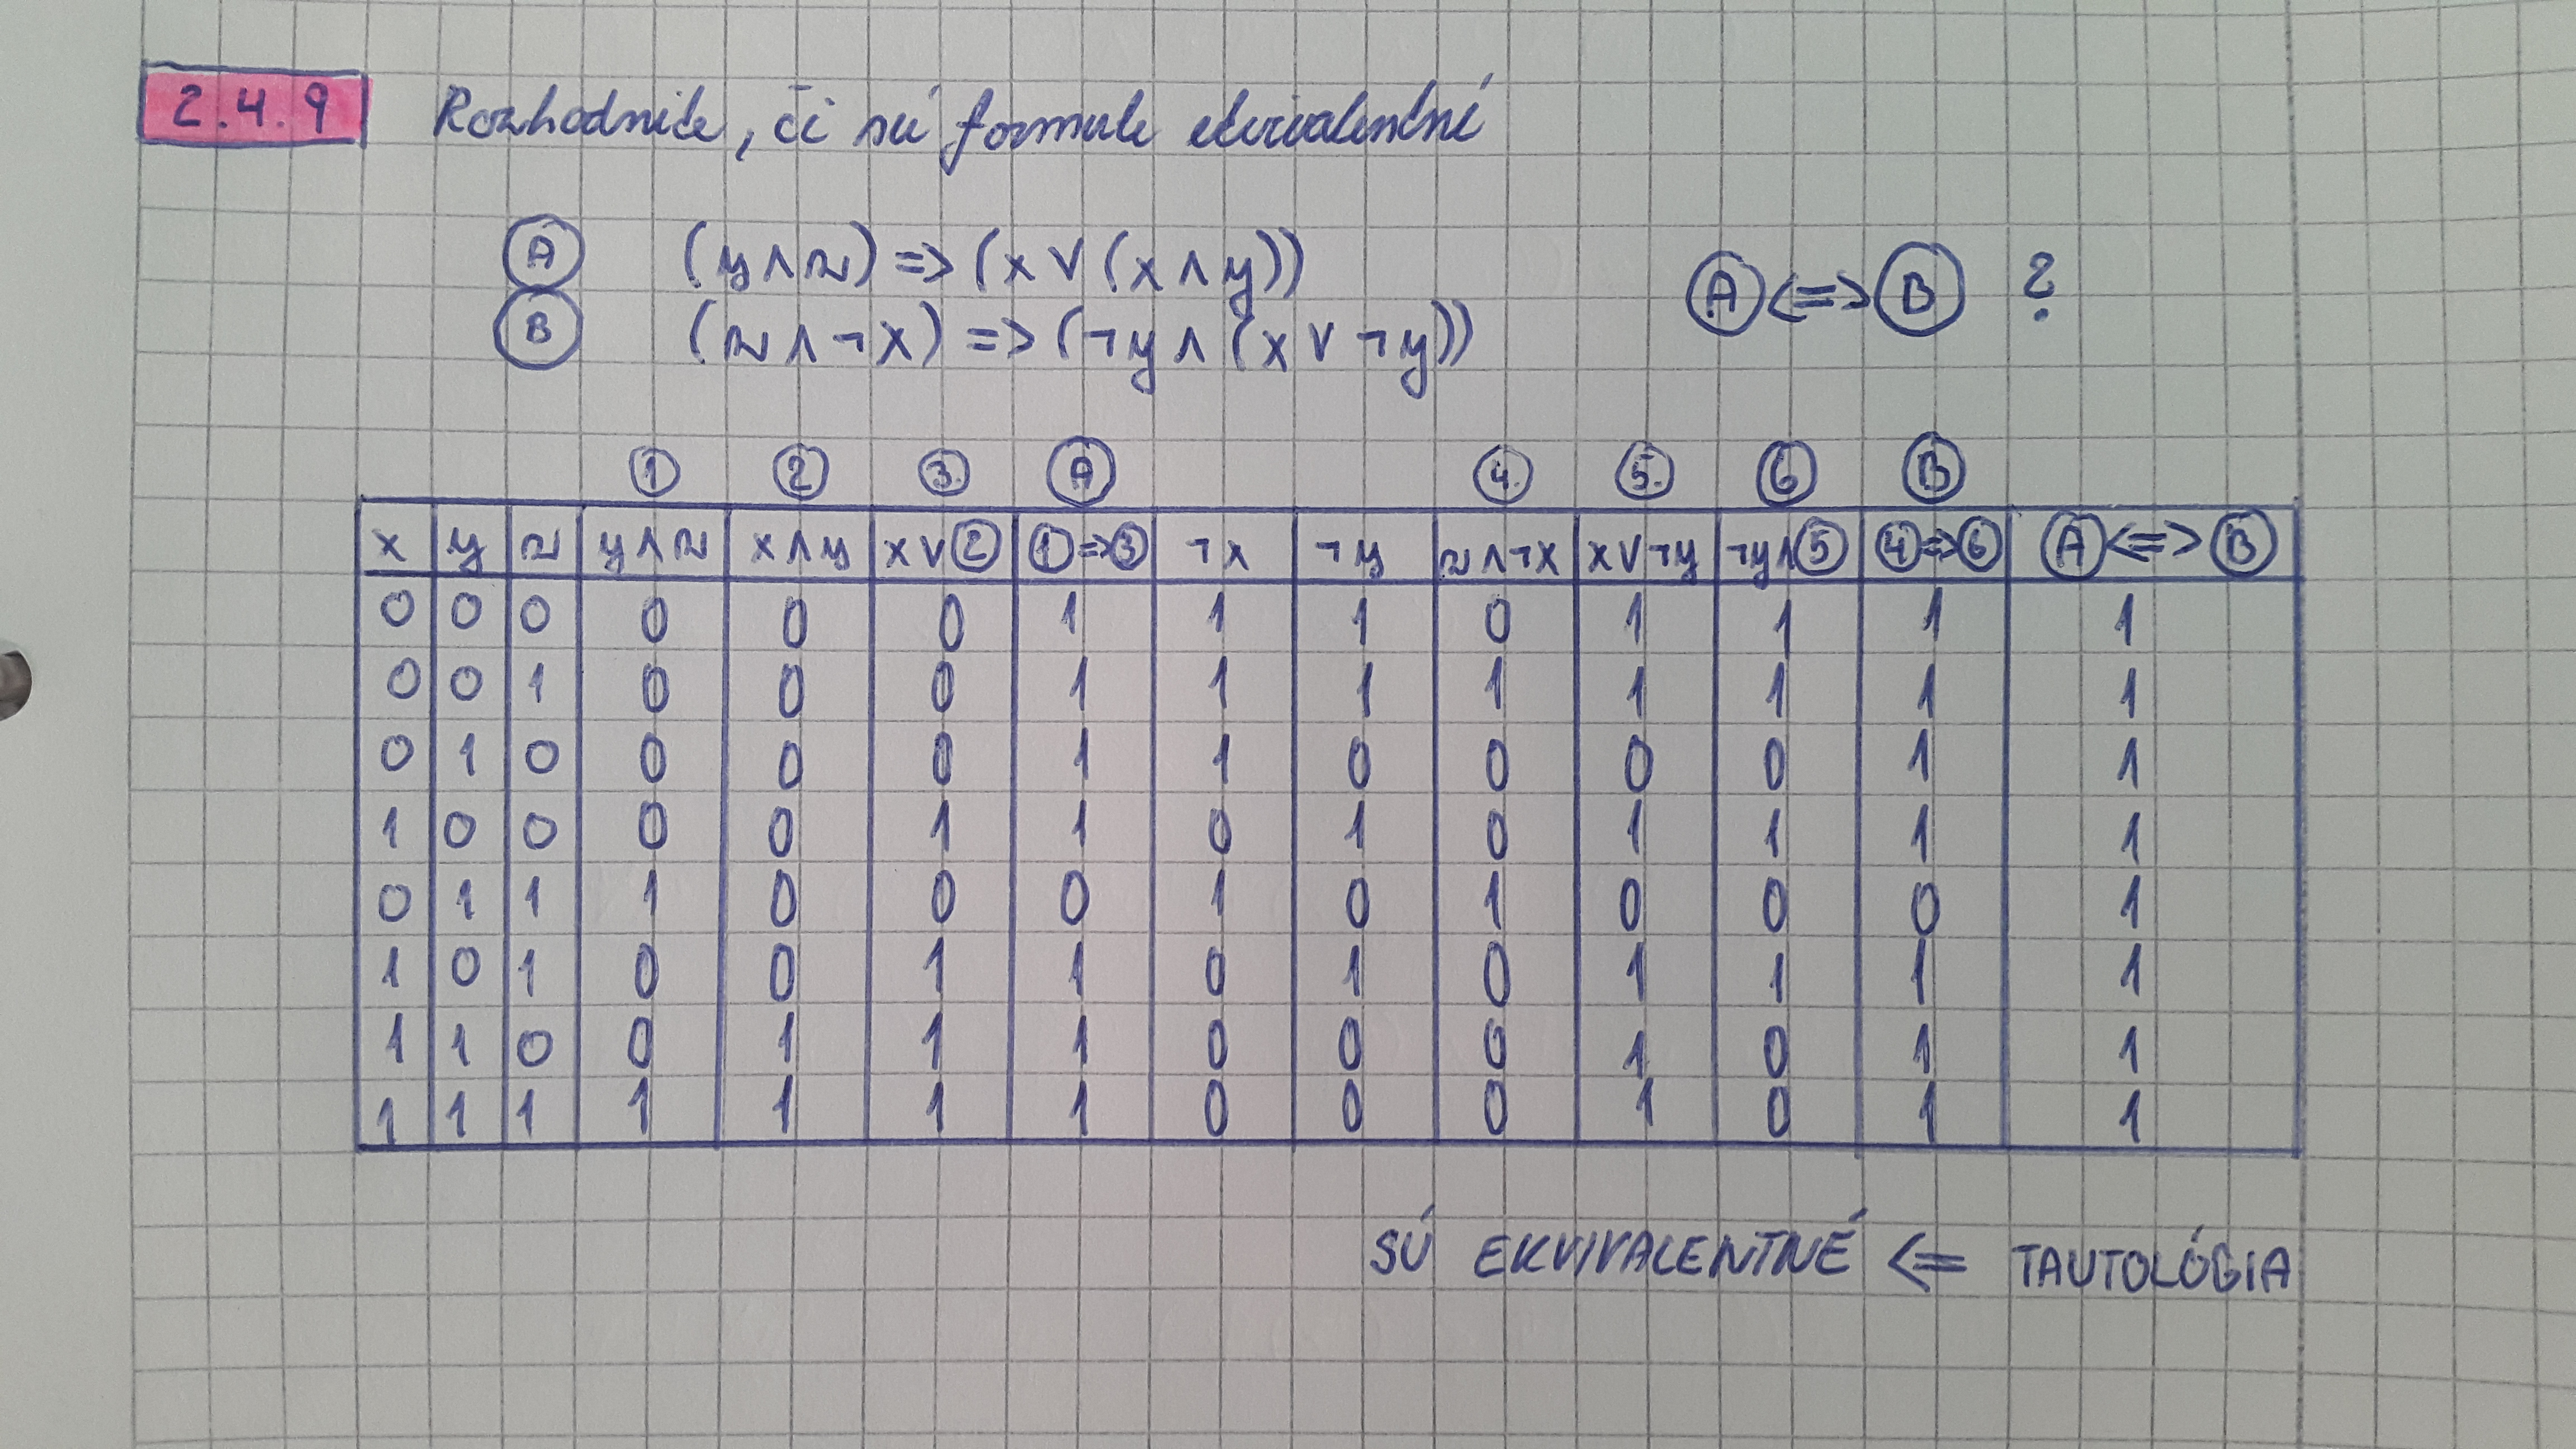 2.4.9 Rozhodnite, či sú formule ekvivalentné
A (y∧z) => (x ∨ (x ∧ y))
B (z∧¬x) => (¬y∧ (x ∨ ¬y))
A <=> B ?
1 2 3. A 4. 5. 6 B
x y z y∧z x∧y x∨2 1=>3 ¬x ¬y z∧¬x x∨¬y ¬y∧5 4=>6 A<=>B
0 0 0 0 0 0 1 1 1 0 1 1 1 1
0 0 1 0 0 0 1 1 1 1 1 1 1 1
0 1 0 0 0 0 1 1 0 0 0 0 1 1
1 0 0 0 0 1 1 0 1 0 1 1 1 1
0 1 1 1 0 0 0 1 0 1 0 0 0 1
1 0 1 0 0 1 1 0 1 0 1 1 1 1
1 1 0 0 1 1 1 0 0 0 1 0 1 1
1 1 1 1 1 1 1 0 0 0 1 0 1 1
SÚ EKVIVALENTNÉ <= TAUTOLÓGIA